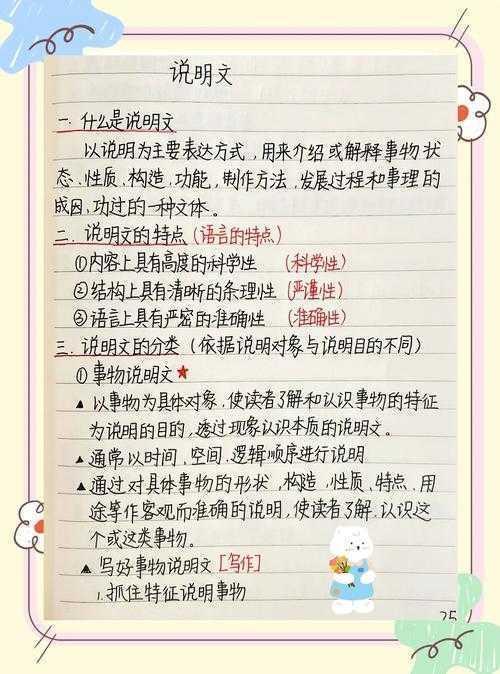 说明文
一. 什么是说明文
以说明为主要表达方式，用来介绍或解释事物状
态、性质、构造、功能，制作方法、发展过程和事理的
成因、功过的一种文体。
二. 说明文的特点(语言的特点)
①内容上具有高度的科学性 (科学性)
②结构上具有清晰的条理性 (严谨性)
③语言上具有严密的准确性 (准确性)
三. 说明文的分类（依据说明对象与说明目的不同）
①事物说明文★
▲以事物为具体对象，使读者了解和认识事物的特征
为说明的目的，透过现象认识本质的说明文。
▲通常以时间、空间、逻辑顺序进行说明
▲通过对具体事物的形状，构造、性质、特点、用
途等作客观而准确的说明，使读者了解、认识这
个或这类事物。
▲写好事物说明文[写作]
1.抓住特征说明事物
25